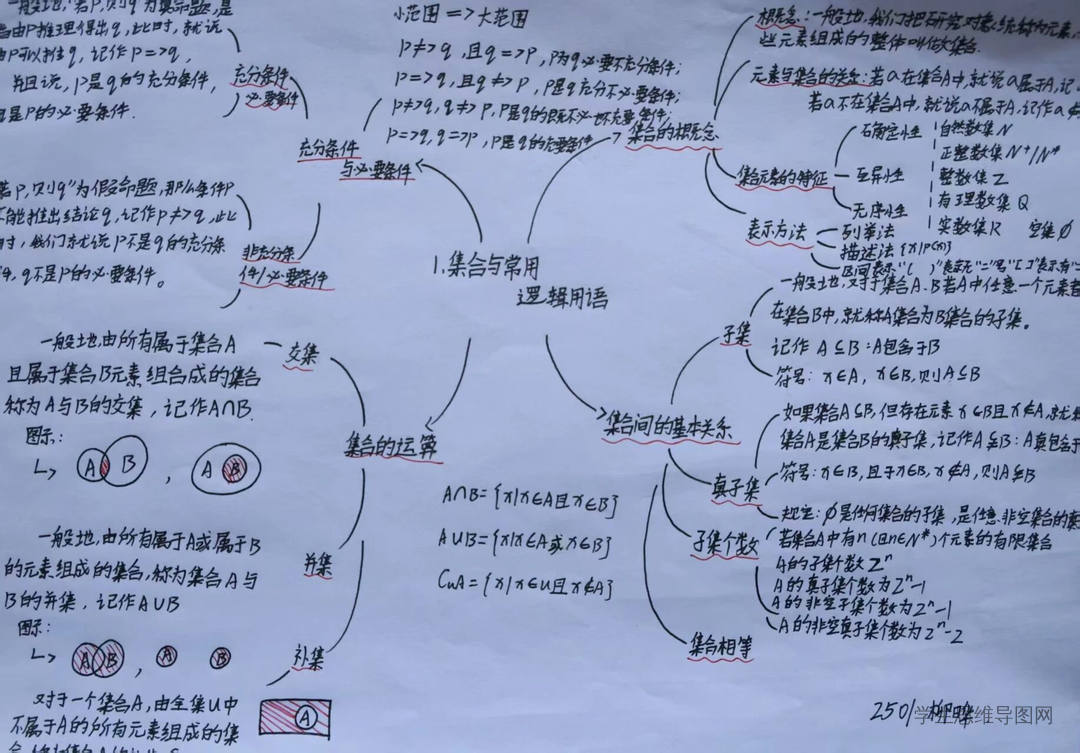 一般地,"若p,则q"为真命题,是
指由p推理得出q,此时,就说
由p可以推出q,记作p=>q,
并且说,p是q的充分条件,
q是p的必要条件.
充分条件
必要条件
小范围=>大范围
p≠>q,且q=>p,p为q必要不充分条件;
p=>q,且q≠>p,p是q充分不必要条件;
p≠>q,q≠>p,p是q的既不必要条件;
p=>q,q=>p,p是q的充要条件
充分条件
与必要条件
若p,则q"为假命题,那么条件p
不能推出结论q,记作p≠>q,此
时,我们就说p不是q的充分条
件,q不是p的必要条件。
非充分条
件/必要条件
1.集合与常用
逻辑用语
集合的概念
概念:一般地,我们把研究对象统称为元素,
些元素组成的整体叫做集合.
元素与集合的关系:若a在集合A中,就说a属于A,记
若a不在集合A中,就说a不属于A,记作a
集合元素的特征
确定性
互异性
无序性
自然数集N
正整数集N+/N*
整数集Z
有理数集Q
实数集R 空集∅
表示方法
列举法
描述法{x|p(x)}
区间表示"( )"表示无"="号"[ ]"表示有"="
集合间的基本关系
子集
一般地,对于集合A.B若A中任意一个元素都
在集合B中,就称A集合为B集合的子集。
记作A⊆B:A包含于B
符号:x∈A,x∈B,则A⊆B
真子集
如果集合A⊆B,但存在元素x∈B且x∉A,就称
集合A是集合B的真子集,记作A⫋B:A真包含于
符号:x∈B,且x∈B,x∉A,则A⫋B
规定:∅是任何集合的子集,是任意非空集合的真
子集个数
若集合A中有n(n∈N*)个元素的有限集合
A的子集个数2ⁿ
A的真子集个数为2ⁿ-1
A的非空子集个数为2ⁿ-1
A的非空真子集个数为2ⁿ-2
集合相等
集合的运算
交集
一般地,由所有属于集合A
且属于集合B元素组合成的集合
称为A与B的交集,记作A∩B.
图示:
A B , A B
A∩B={x|x∈A且x∈B}
A∪B={x|x∈A或x∈B}
CuA={x|x∈U且x∉A}
并集
一般地,由所有属于A或属于B
的元素组成的集合,称为集合A与
B的并集,记作A∪B
图示:
A B , A B
补集
对于一个集合A,由全集U中
不属于A的所有元素组成的集
A
2501
学生思维导图网